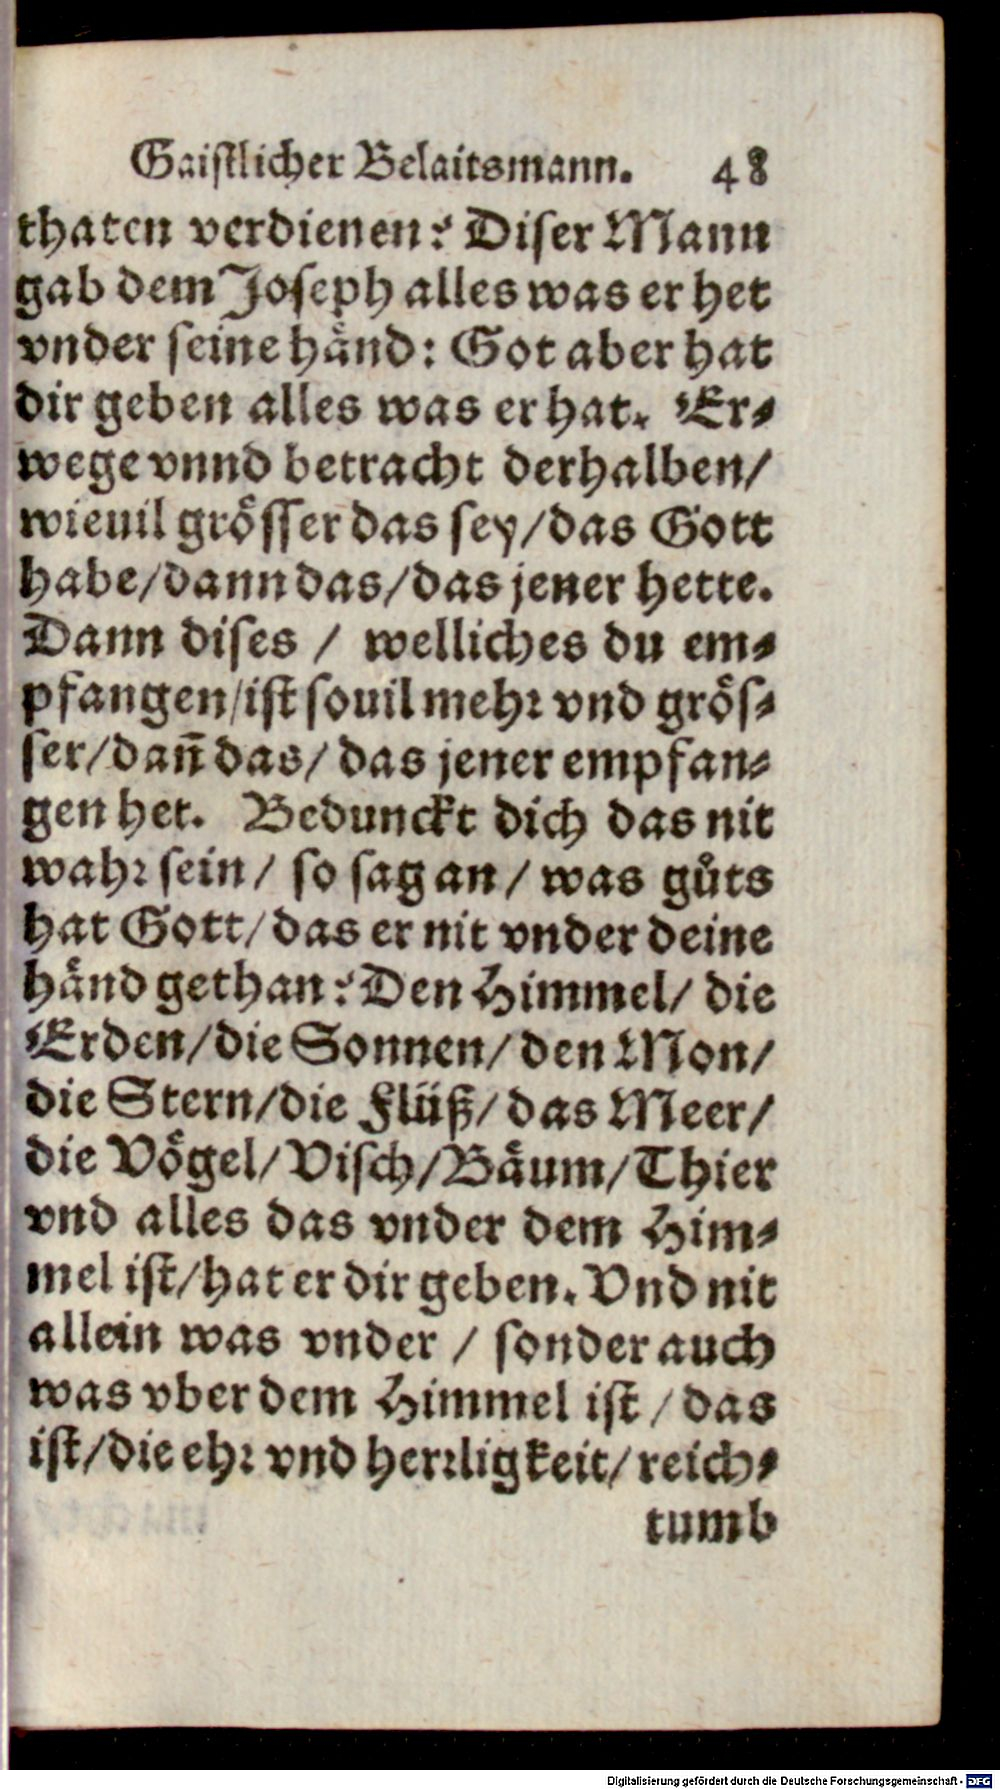 Gaiſtlicher Belaitsmann. 48
thaten verdienen? Diſer Mann
gab dem Joſeph alles was er het
vnder ſeine haͤnd: Got aber hat
dir geben alles was er hat. Er⸗
wege vnnd betracht derhalben/
wieuil groͤſſer das ſey/das Gott
habe/dann das/das jener hette.
Dann diſes / welliches du em⸗
pfangen/iſt ſouil mehꝛ vnd groͤſ⸗
ſer/dañ das/ das jener empfan⸗
gen het. Bedunckt dich das nit
wahꝛ ſein/ ſo ſag an/ was guͦts
hat Gott/das er nit vnder deine
haͤnd gethan? Den Himmel/ die
Erden/die Sonnen/ den Mon/
die Stern/die Fluͤß/ das Meer/
die Voͤgel/Viſch/Baͤum/Thier
vnd alles das vnder dem Him⸗
mel iſt/hat er dir geben. Vnd nit
allein was vnder / ſonder auch
was vber dem Himmel iſt / das
iſt/die ehꝛ vnd herꝛligkeit/ reich⸗
tumb
Digitalisierung gefördert durch die Deutsche Forschungsgemeinschaft - DFG